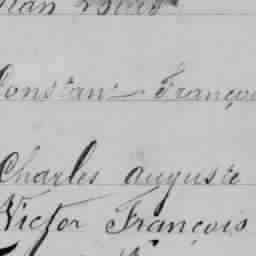 Constant François
Charles auguste
Victor François